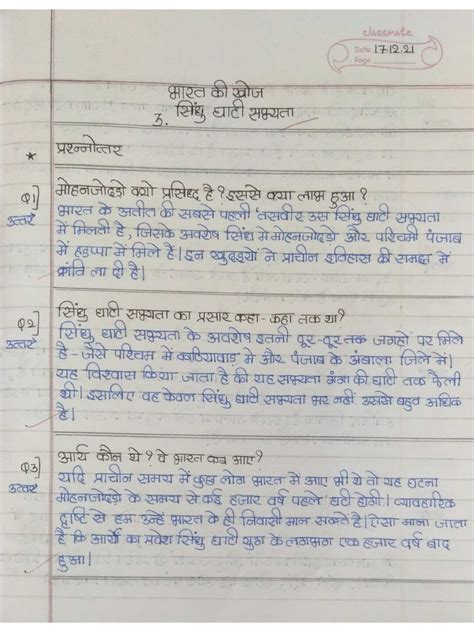 classmate
Date 17.12.21
Page
भारत की खोज
3. सिंधु घाटी सभ्यता
* प्रश्नोत्तर
Q1] मोहनजोदड़ो क्यों प्रसिद्ध है? इससे क्या लाभ हुआ?
उत्तर भारत के अतीत की सबसे पहली तसवीर उस सिंधु घाटी सभ्यता
में मिलती है, जिसके अवशेष सिंध में मोहनजोदड़ो और पश्चिमी पंजाब
में हड़प्पा में मिले हैं। इन खुदाइयों ने प्राचीन इतिहास की समझ में
क्रांति ला दी है।
Q2] सिंधु घाटी सभ्यता का प्रसार कहा-कहा तक था?
उत्तर सिंधु घाटी सभ्यता के अवशेष इतनी दूर-दूर तक जगहों पर मिले
है - जैसे पश्चिम में काठियावाड़ में और पंजाब के अंबाला जिले में।
यह विश्वास किया जाता है की यह सभ्यता गंगा की घाटी तक फैली
थी। इसलिए वह केवल सिंधु घाटी सभ्यता भर नहीं उससे बहुत अधिक
है।
Q3] आर्य कौन थे? वे भारत कब आए?
उत्तर यदि प्राचीन समय में कुछ लोग भारत में आए भी थे तो यह घटना
मोहनजोदड़ो के समय से कई हजार वर्ष पहले घटी होगी। व्यावहारिक
दृष्टि से हम उन्हें भारत के ही निवासी मान सकते है। ऐसा माना जाता
है कि आर्यों का प्रवेश सिंधु घाटी युग के लगभग एक हजार वर्ष बाद
हुआ।